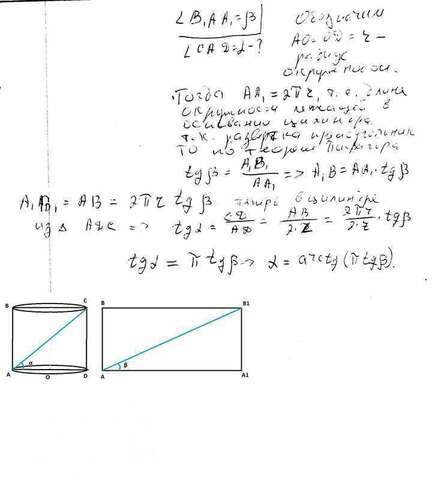 ∠B₁AA₁=β
∠CAD=α-?
Обозначим
AO=OD=r -
радиус
окружности.
Тогда AA₁=2πr, т.е. длина
окружности лежащей в
основании цилиндра.
т.к. развертка прямоугольник
то по теореме Пифагора
tgβ = A₁B₁/AA₁ => A₁B = AA₁·tgβ
A₁B₁ = AB = 2πr tgβ теперь в цилиндре
из △ ADC => tgα = CD/AD = AB/2·r = 2πr/2·r · tgβ
tgα = π tgβ => α = arctg(π tgβ).
B C B B1
A α D A β A1
O